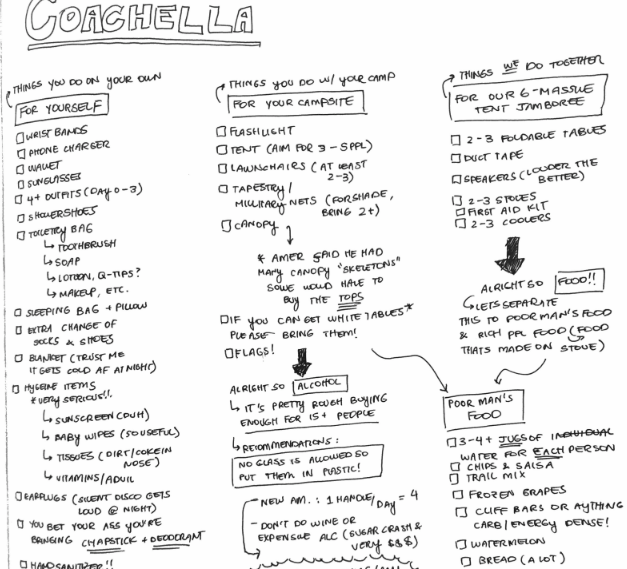 COACHELLA
THINGS YOU DO ON YOUR OWN
FOR YOURSELF
WRIST BANDS
PHONE CHARGER
WALLET
SUNGLASSES
4+ OUTFITS (DAY 0-3)
SHOWERSHOES
TOILETRY BAG
↳ TOOTHBRUSH
↳ SOAP
↳ LOTION, Q-TIPS?
↳ MAKEUP, ETC.
SLEEPING BAG + PILLOW
EXTRA CHANGE OF
SOCKS & SHOES
BLANKET (TRUST ME
IT GETS COLD AF AT NIGHT)
HYGEINE ITEMS
*VERY SERIOUS!!
↳ SUNSCREEN (DUH)
↳ BABY WIPES (SO USEFUL)
↳ TISSUES (DIRT/COKEIN
NOSE)
↳ VITAMINS/ADVIL
EARPLUGS (SILENT DISCO GETS
LOUD @ NIGHT)
YOU BET YOUR ASS YOU'RE
BRINGING CHAPSTICK + DEODORANT
HAND SANITIZER!!
THINGS YOU DO W/ YOUR CAMP
FOR YOUR CAMPSITE
FLASHLIGHT
TENT (AIM FOR 3-5PPL)
LAWNCHAIRS (AT LEAST
2-3)
TAPESTRY/
MILLITARY NETS (FOR SHADE,
BRING 2+)
CANOPY
* AMER SAID HE HAD
MANY CANOPY "SKELETONS"
SO WE WOULD HAVE TO
BUY THE TOPS
IF YOU CAN GET WHITE TABLES*
PLEASE BRING THEM!
FLAGS!
ALRIGHT SO ALCOHOL
↳ IT'S PRETTY ROUGH BUYING
ENOUGH FOR 15+ PEOPLE
↳ RECOMMENDATIONS:
NO GLASS IS ALLOWED SO
PUT THEM IN PLASTIC!
- NEW AM.: 1 HANDLE/DAY = 4
- DON'T DO WINE OR
EXPENSIVE ALC (SUGAR CRASH &
VERY $$$)
THINGS WE DO TOGETHER
FOR OUR 6-MASSIVE
TENT JAMBOREE
2-3 FOLDABLE TABLES
DUCT TAPE
SPEAKERS (LOUDER THE
BETTER)
2-3 STOVES
FIRST AID KIT
2-3 COOLERS
ALRIGHT SO FOOD!!
↳ LETS SEPARATE
THIS TO POOR MAN'S FOOD
& RICH PPL FOOD (FOOD
THATS MADE ON STOVE)
POOR MAN'S
FOOD
3-4+ JUGS OF INDIVIDUAL
WATER FOR EACH PERSON
CHIPS & SALSA
TRAIL MIX
FROZEN GRAPES
CLIFF BARS OR AYTHING
CARB/ENERGY DENSE!
WATERMELON
BREAD (A LOT)